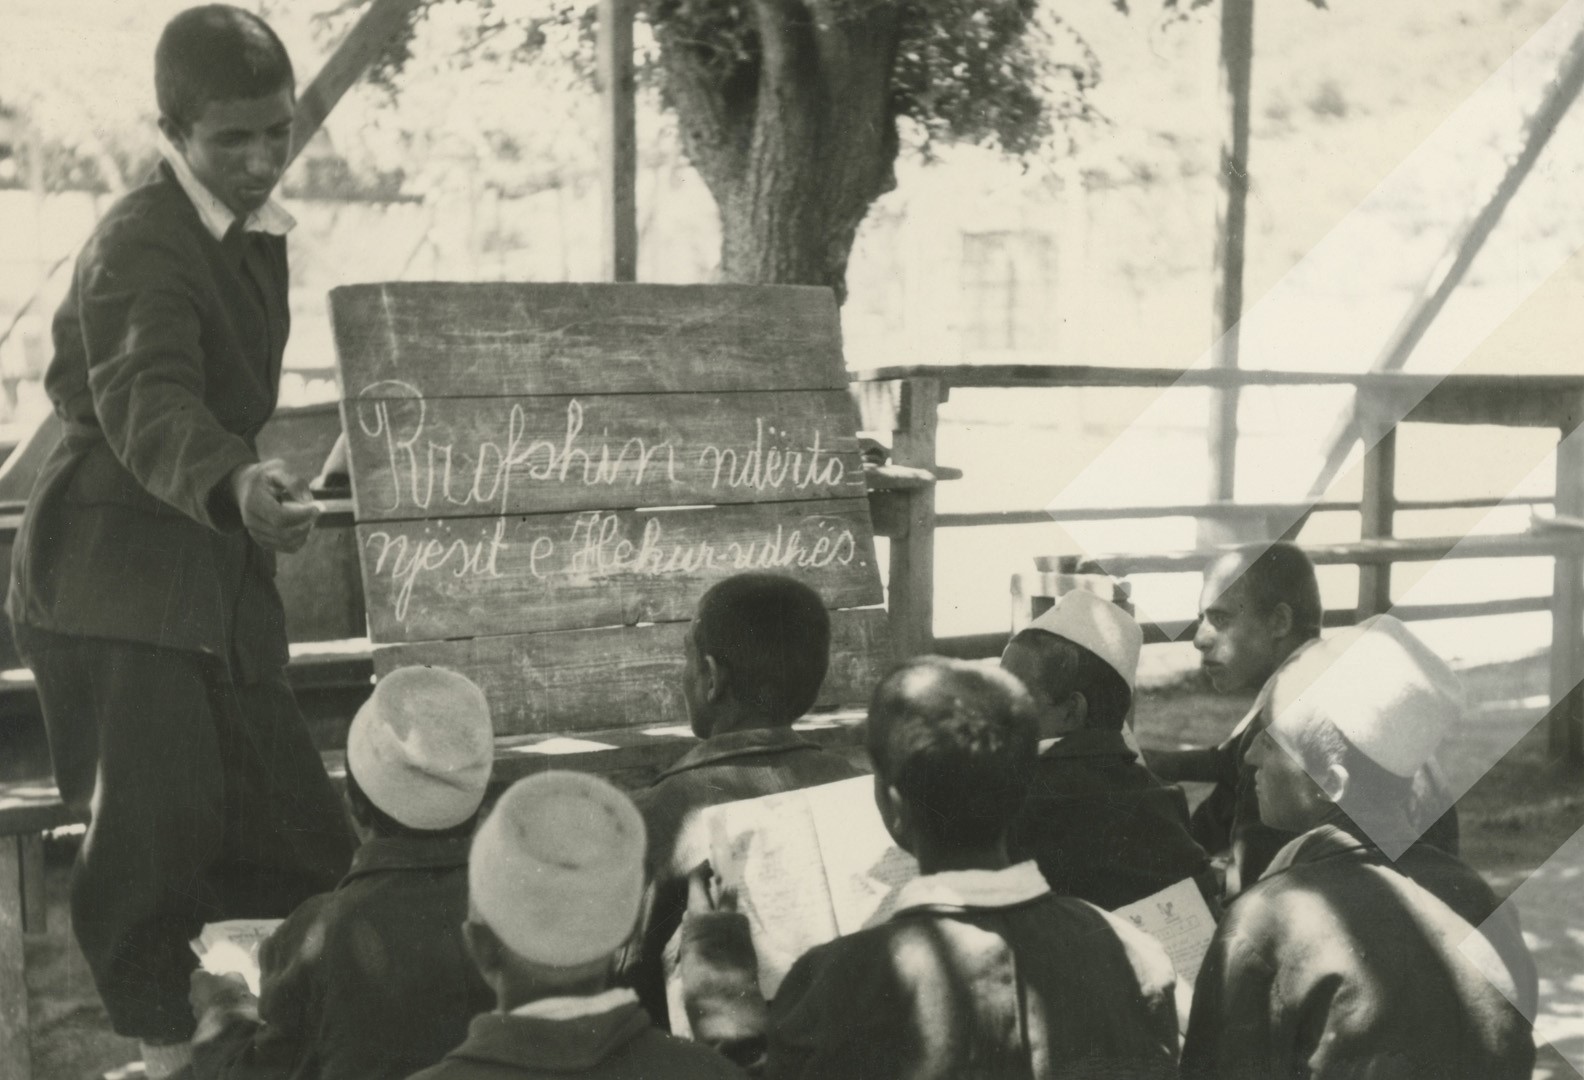 Rrofshin ndërto-
njësit e Hekur-udhës.